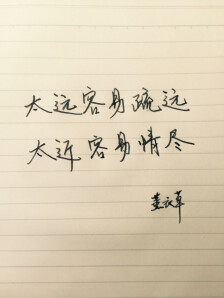 太远容易疏远
太近容易情尽